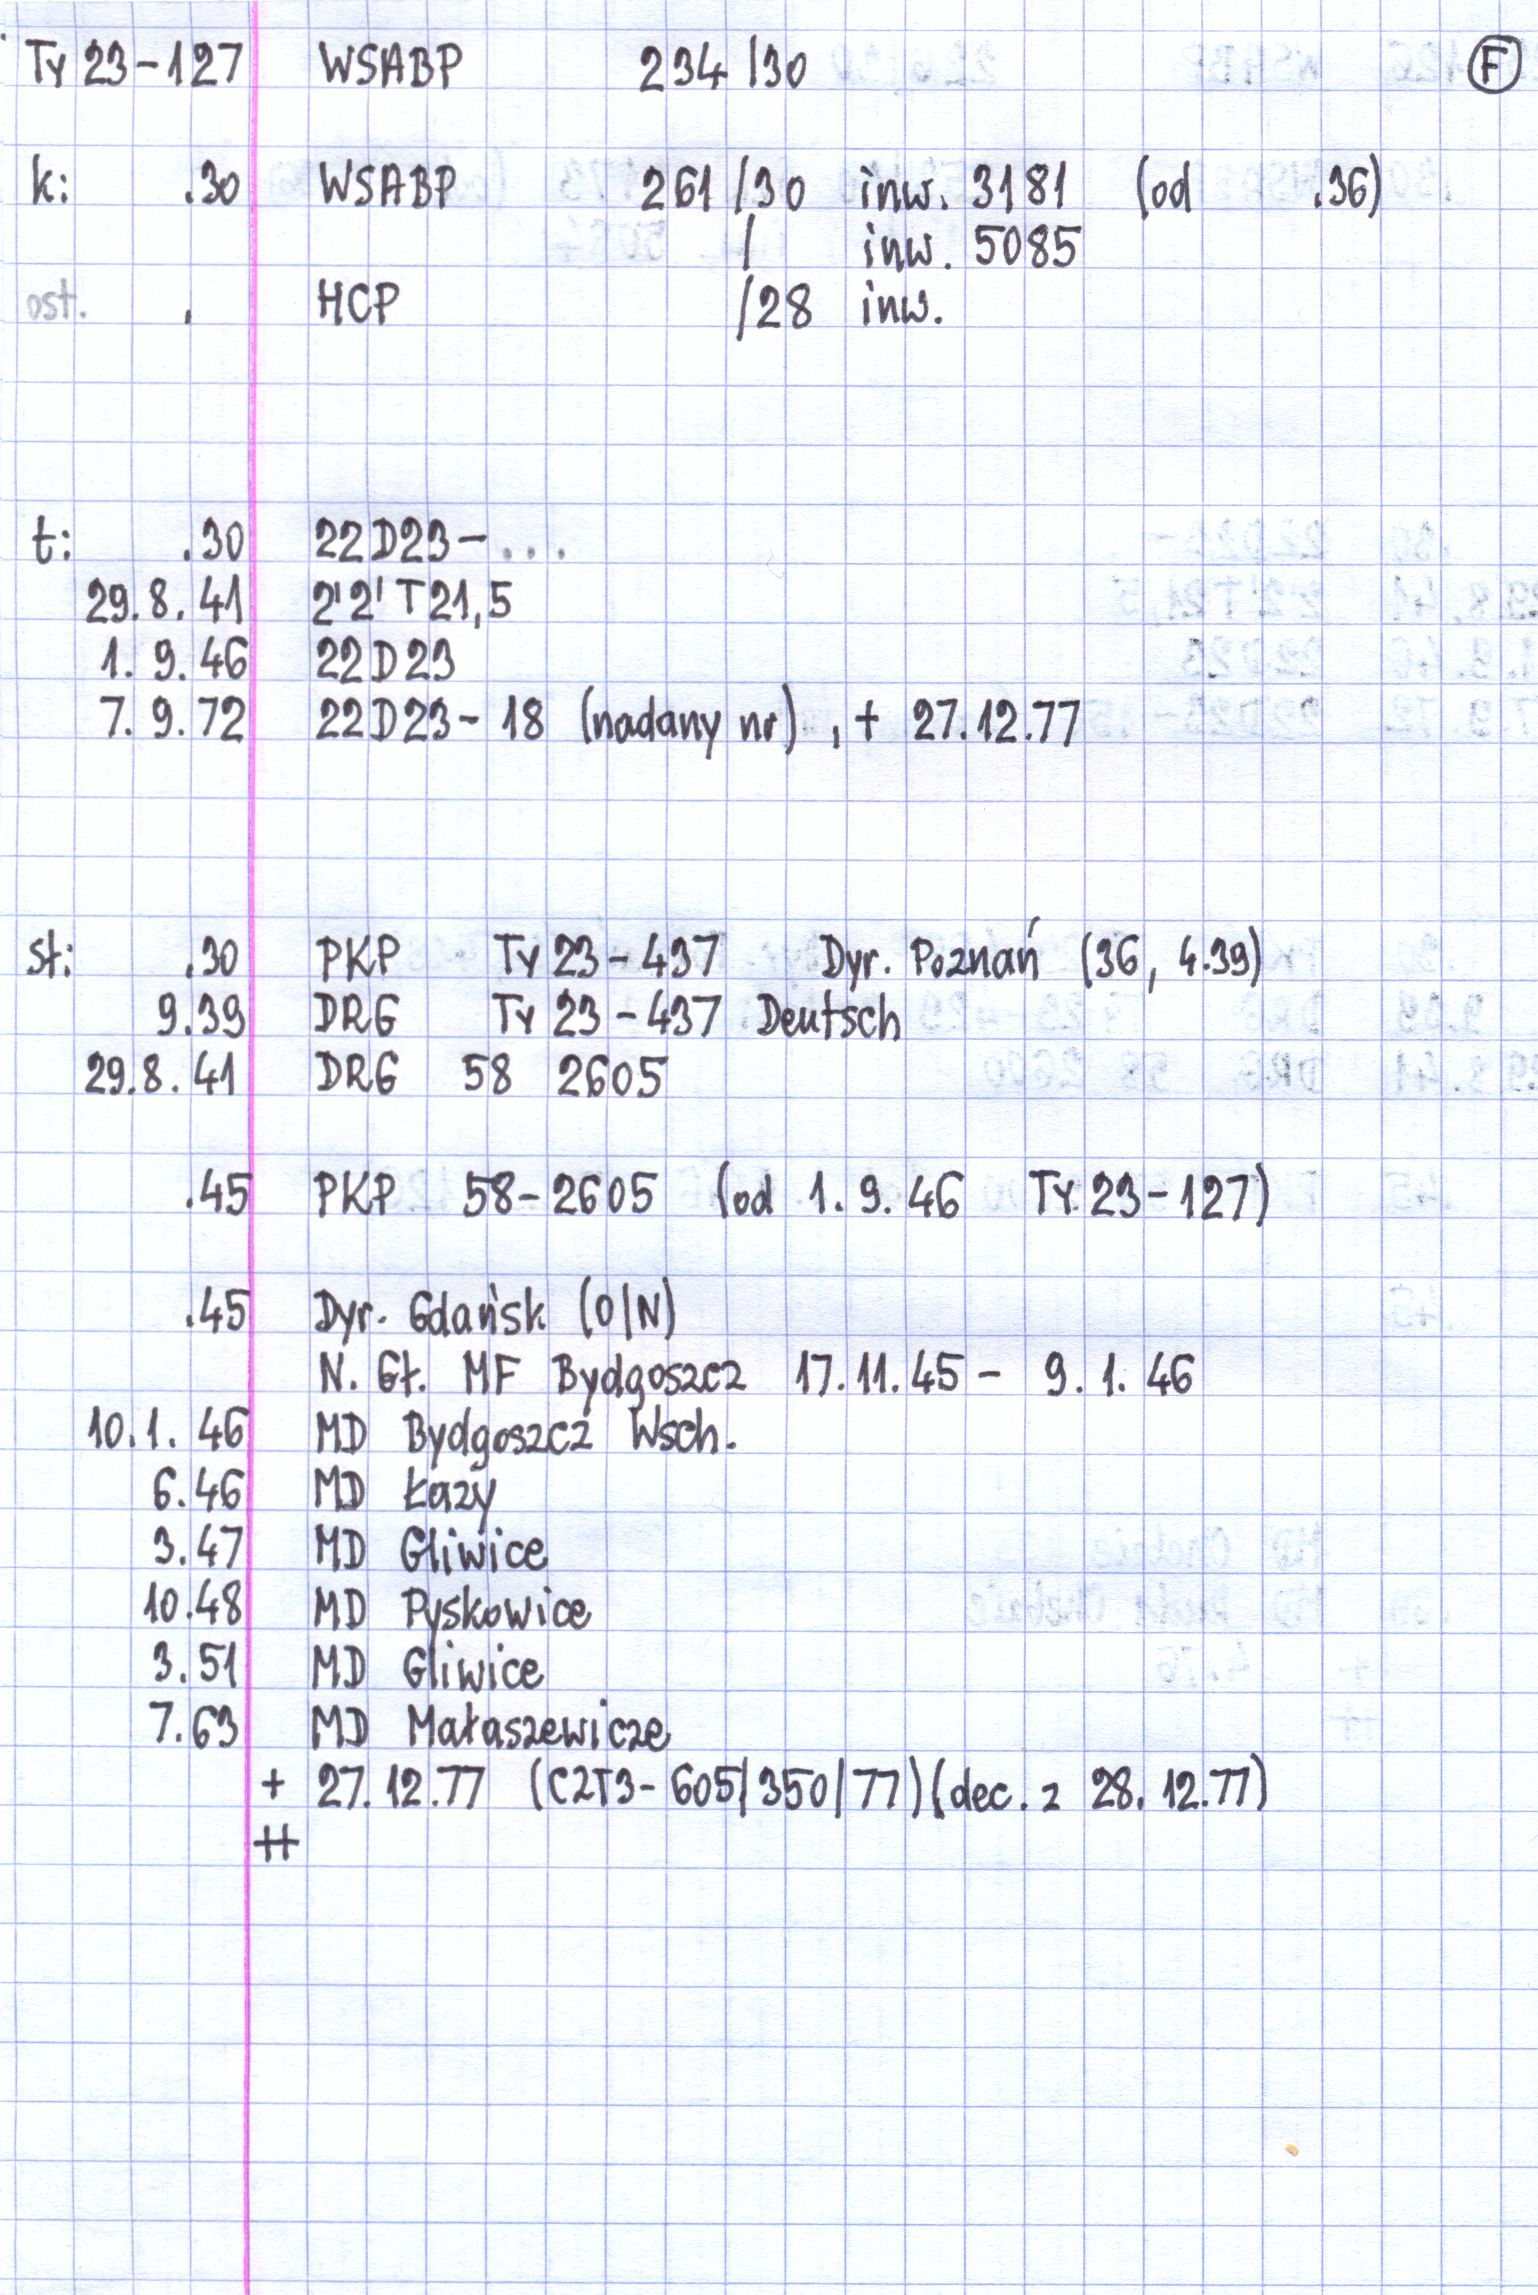 Ty 23-127 WSABP 234/30 F
k: .30 WSABP 261/30 inw. 3181 (od .36)
/ inw. 5085
ost. . HCP /28 inw.
t: .30 22D23-...
29.8.41 2'2'T21,5
1.9.46 22D23
7.9.72 22D23-18 (nadany nr), + 27.12.77
st: .30 PKP Ty 23-437 Dyr. Poznań (36, 4.39)
9.39 DRG Ty 23-437 Deutsch
29.8.41 DRG 58 2605
.45 PKP 58-2605 (od 1.9.46 Ty 23-127)
.45 Dyr. Gdańsk (O/N)
N. Gł. MF Bydgoszcz 17.11.45 - 9.1.46
10.1.46 MD Bydgoszcz Wsch.
6.46 MD Łazy
3.47 MD Gliwice
10.48 MD Pyskowice
3.51 MD Gliwice
7.63 MD Małaszewicze
+ 27.12.77 (C2T3-605/350/77)(dec. z 28.12.77)
++